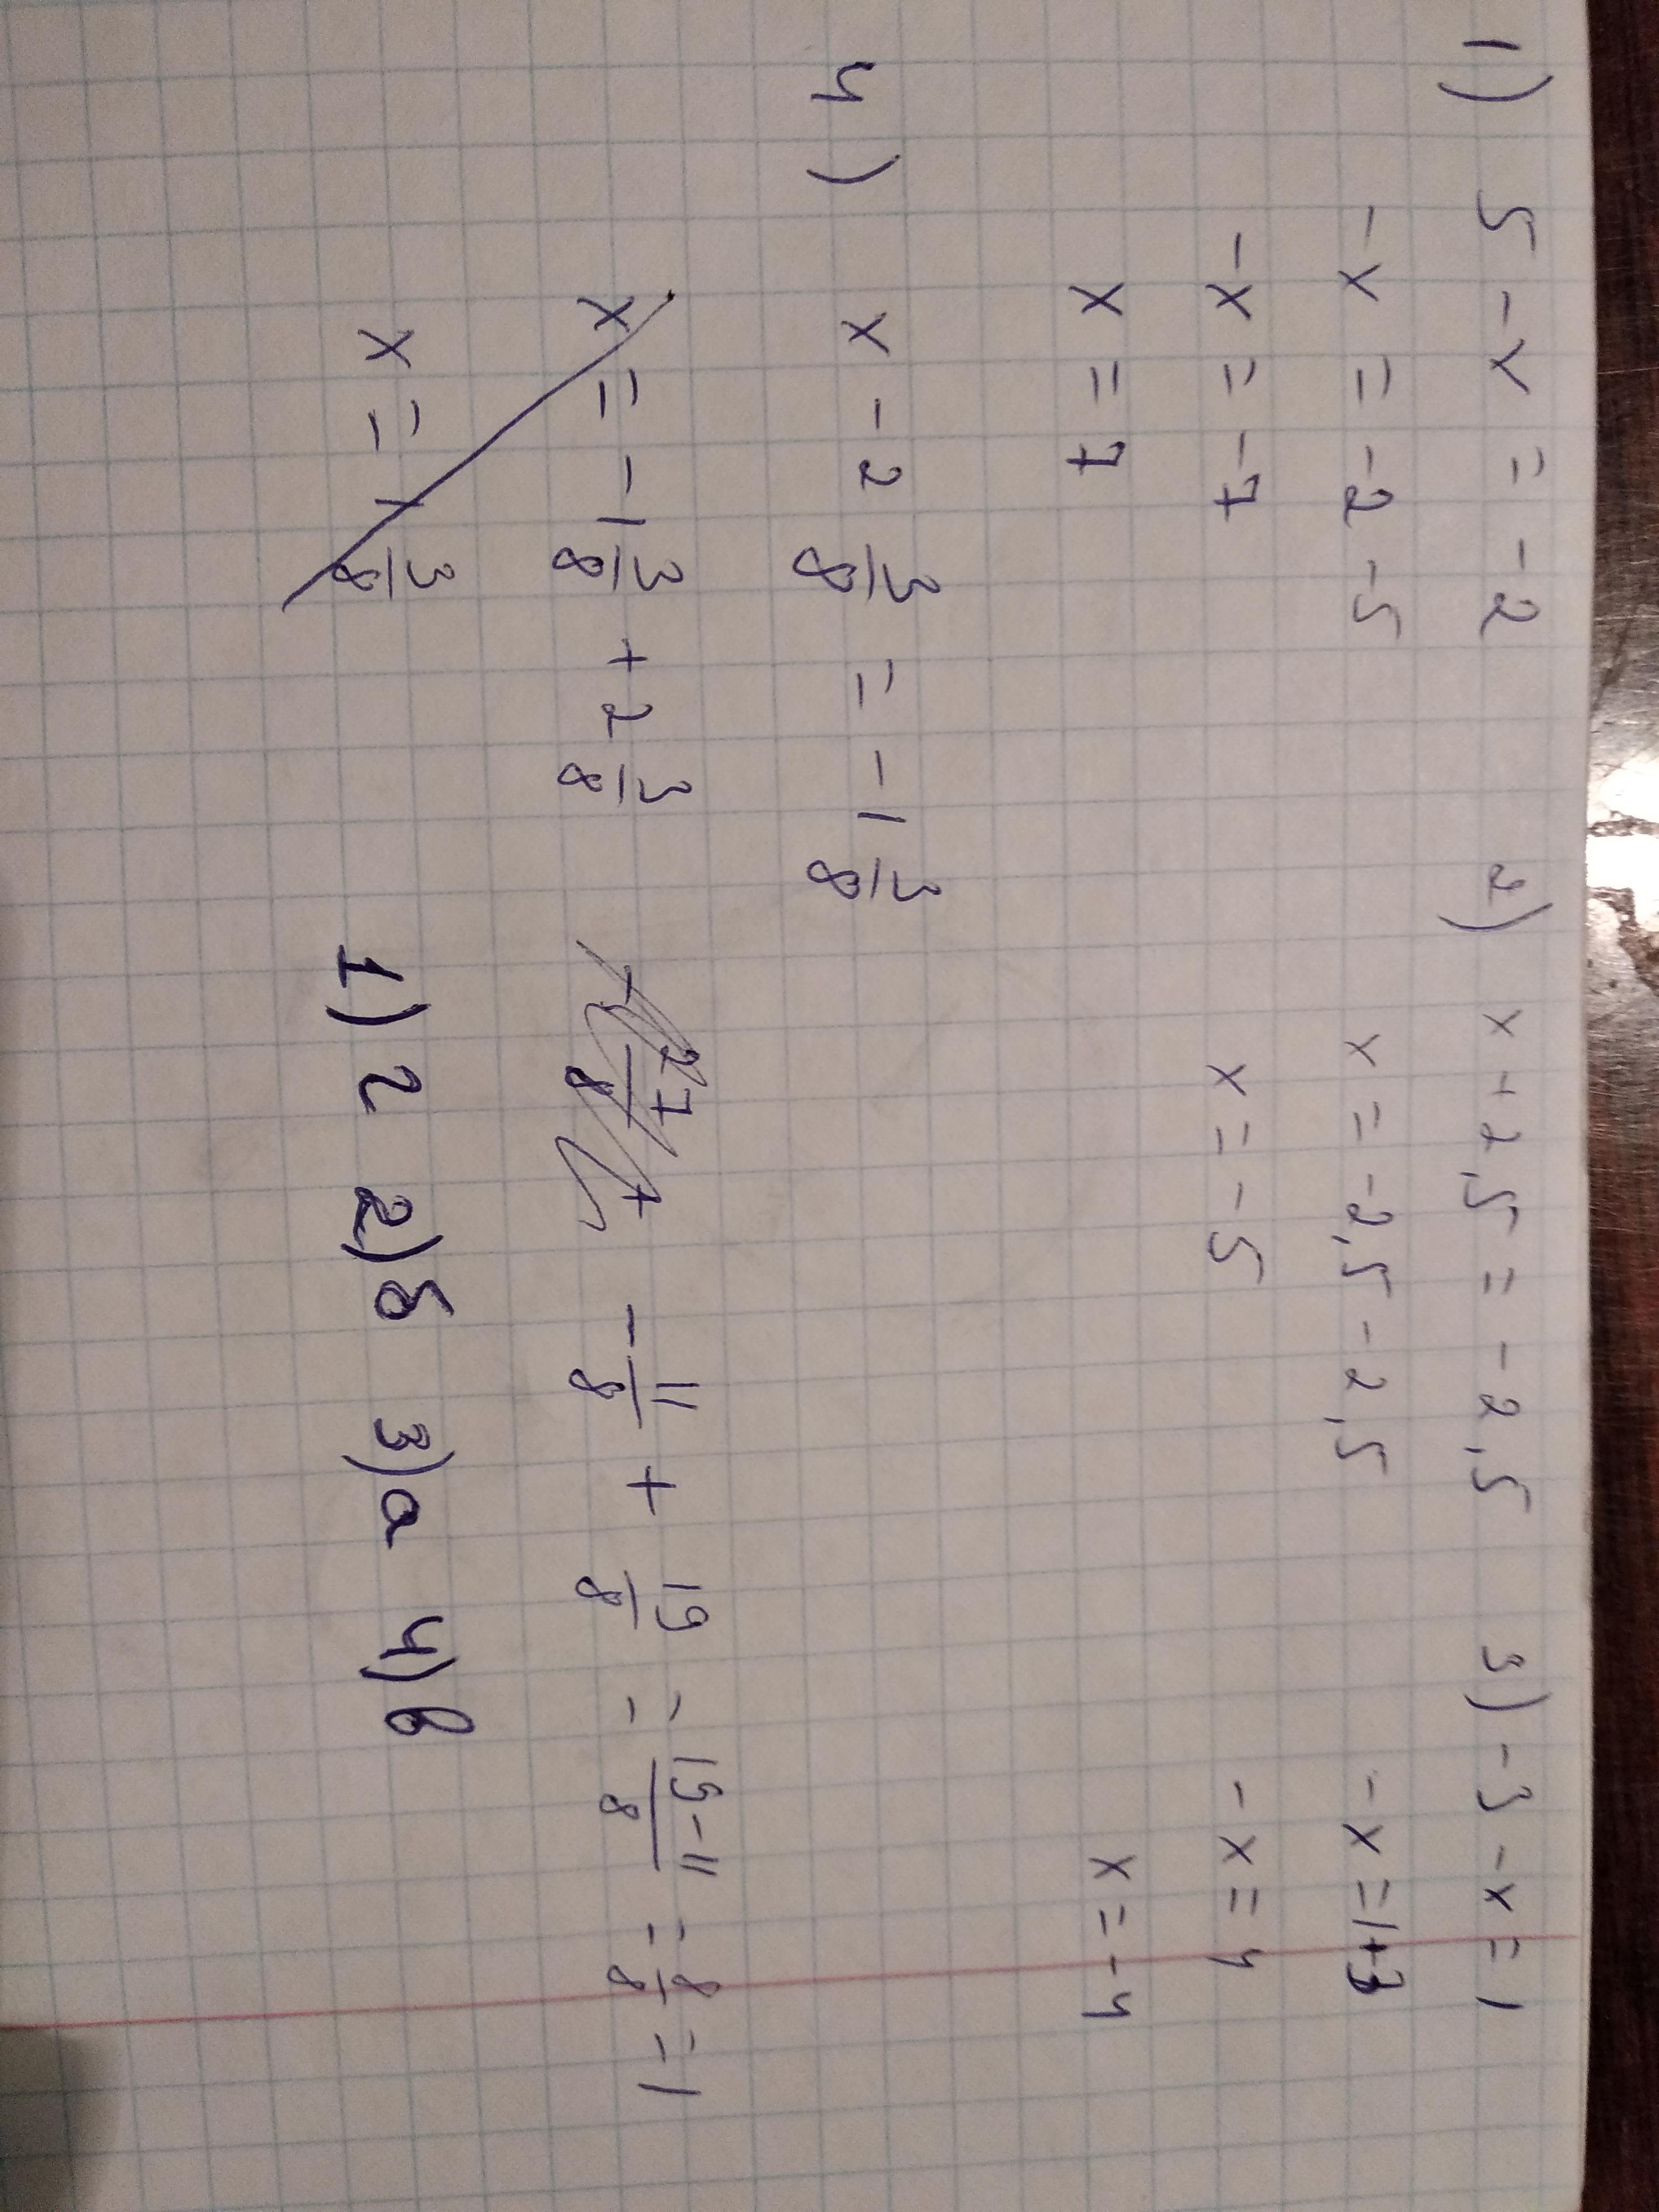 1) 5 - x = -2
-x = -2 -5
-x = -7
x = 7
2) x + 2,5 = -2,5
x = -2,5 - 2,5
x = -5
3) -3 - x = 1
-x = 1+3
-x = 4
x = -4
4) x - 2 3/8 = -1 3/8
x = -1 3/8 + 2 3/8
x = 1 3/8
-11/8 + 19/8 = 19-11/8 = 8/8 = 1
1) г 2) б 3) а 4) в